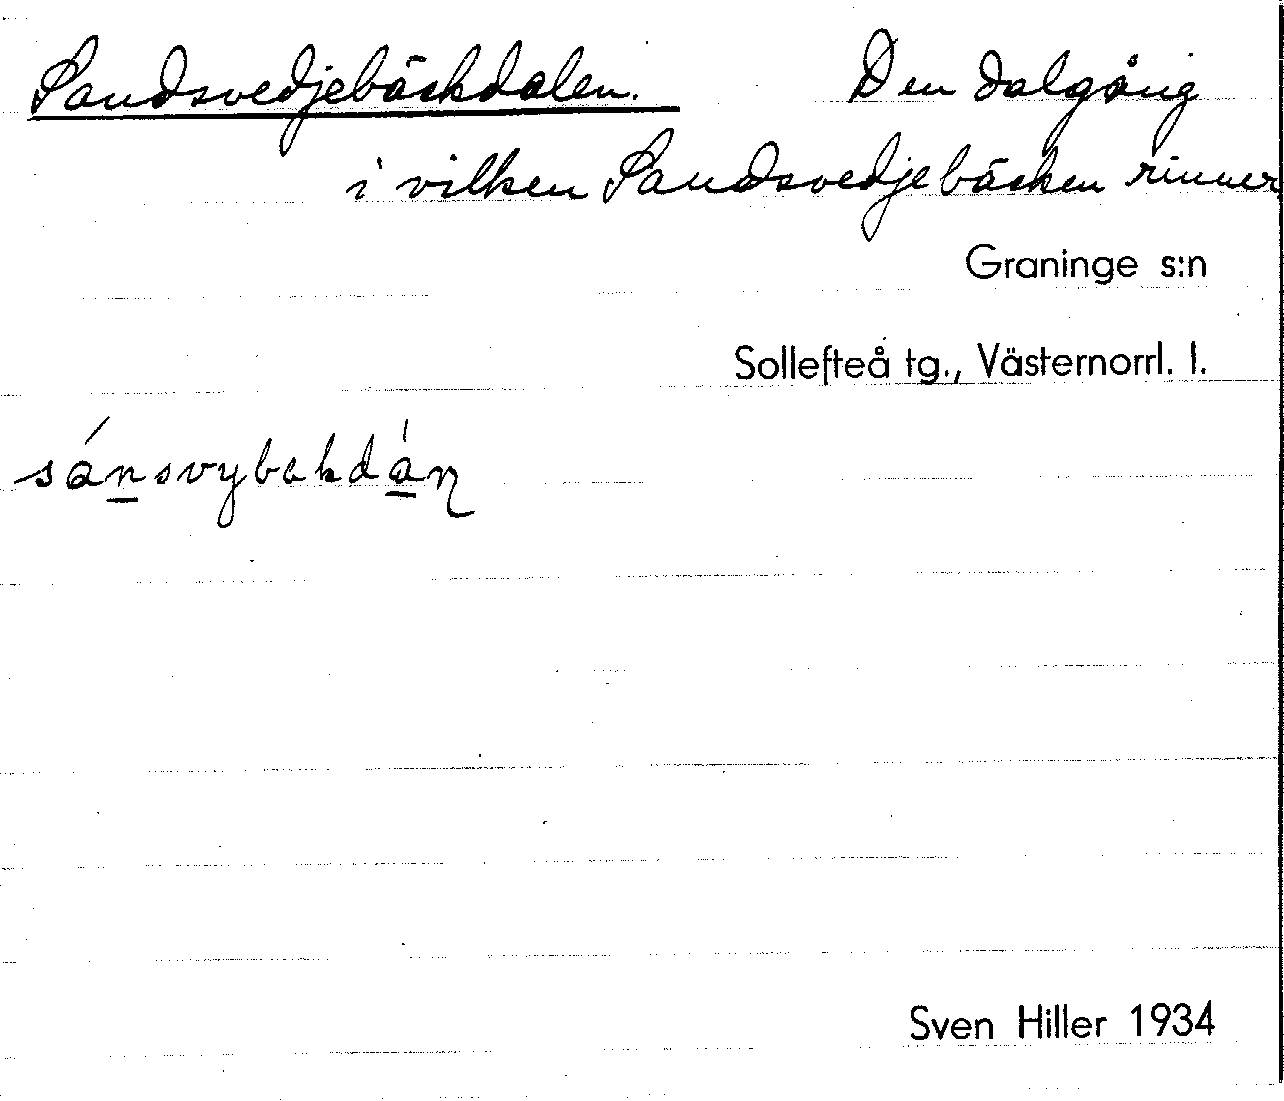 Sandsvedjebäckdalen. Den dalgång
i vilken Sandsvedjebäcken rinner
Graninge s:n
Sollefteå tg., Västernorrl. l.
sánsvybakdán
Sven Hiller 1934